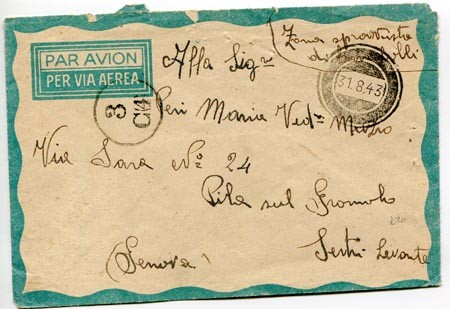 PAR AVION
PER VIA AEREA
Zona sprovvista
di bolli
Alla Sigra
31.8.43
3
Peri Maria Ved.
Via Sara No 24
Pila sul Gromolo
Sestri Levante
(Genova)